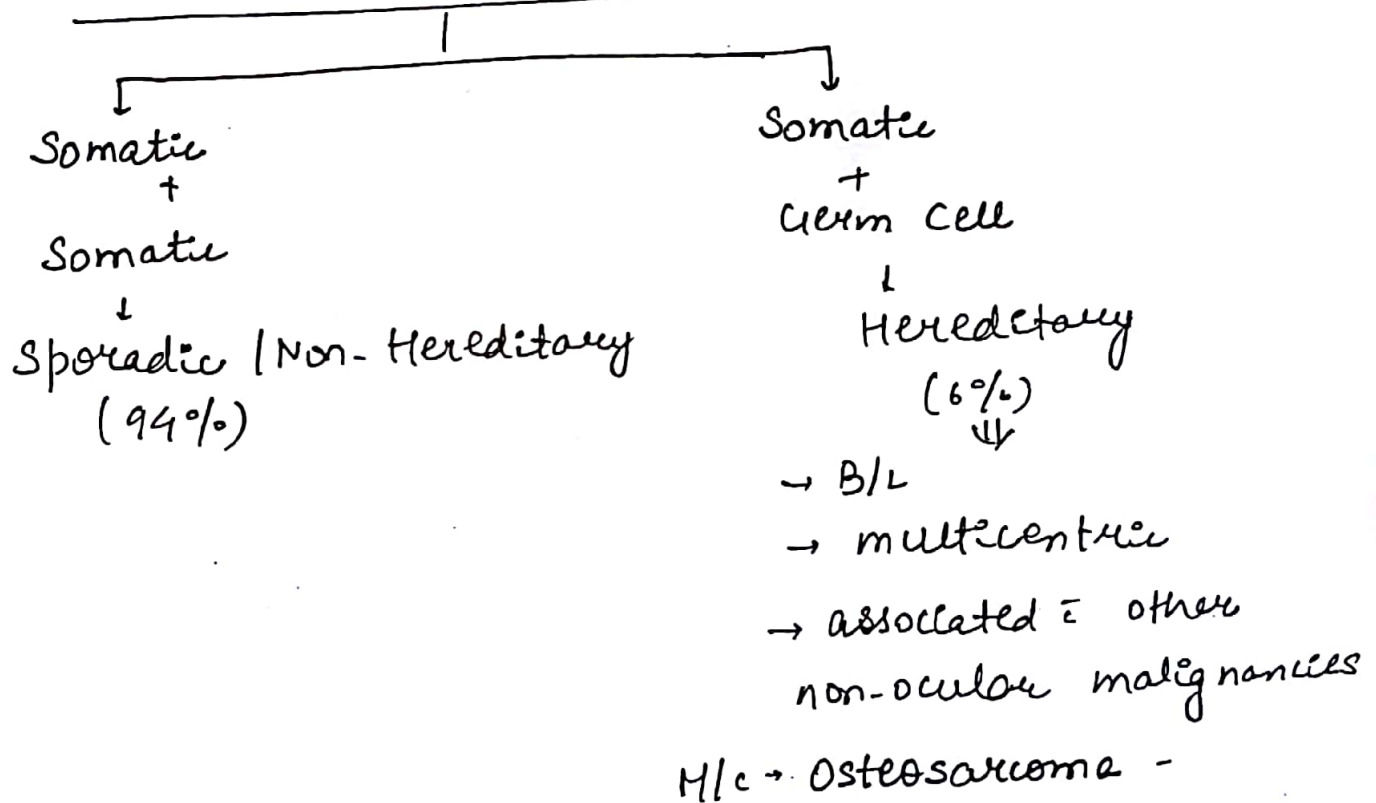 Somatic
+
Somatic
↓
Sporadic / Non-Hereditary
(94%)
Somatic
+
Germ Cell
↓
Hereditary
(6%)
⇓
→ B/L
→ multicentric
→ associated c̄ other
non-ocular malignancies
M/c → Osteosarcoma -